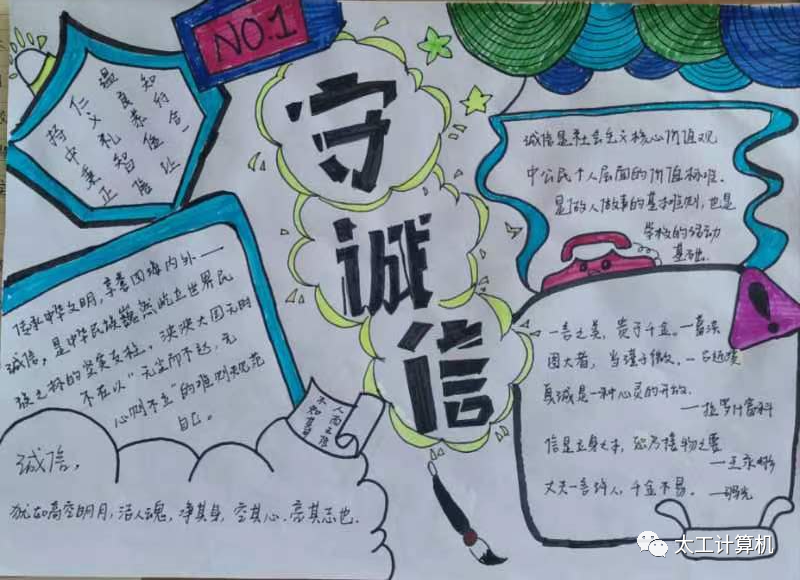 NO.1
守
诚
信
持中秉正
仁义礼智信
温良恭
知 合一
传承中华文明，享誉四海内外——
诚信，是中华民族巍然屹立世界民
族之林的坚实支柱。泱泱大国无时
不在以“ 而不达，无
心则不立”的准则规范
自己。
人而无信
不知其可
诚信，
犹如高空明月，洁人魂，净其身，空其心，亮其志也．
诚信是社会主义核心价值观
中公民个人层面的价值标准．
是做人做事的基本准则，也是
学校的活动
基础．
一言之美，贵于千金。
图大者，当谨于微．
真诚是一种心灵的开放．
——拉罗什富科
信是立身之本，恕乃接物之要
——王永彬
大丈一言许人，千金不易．
太工计算机